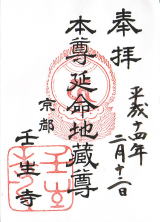 奉拝
平成十四年
二月十二日
本尊延命地蔵尊
京都
壬生寺